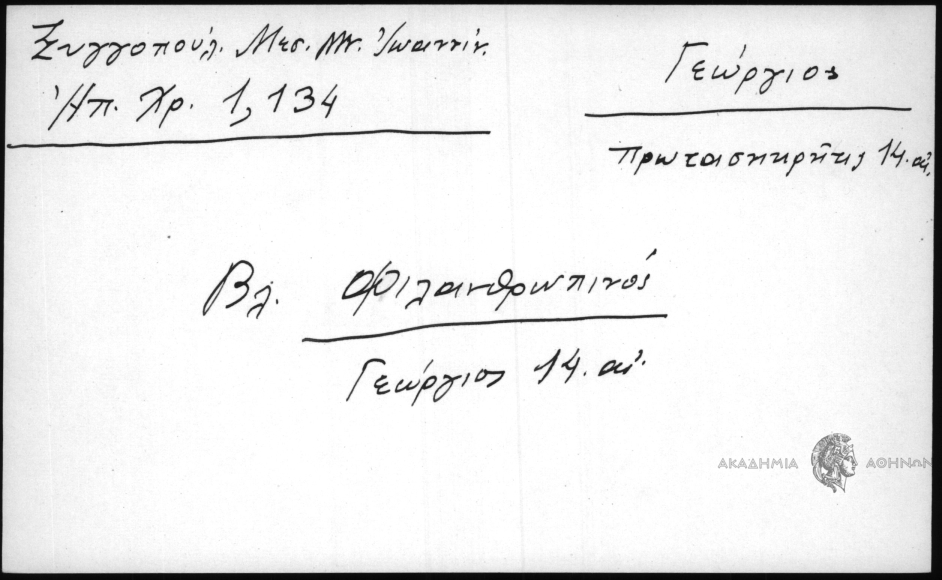 Ξυγγοπούλ. Μεσ. Μν. Ἰωαννίν.
Ἠπ. Χρ. 1, 134
Γεώργιος
πρωτασηκρῆτις 14. αἰ.
Βλ. Φιλανθρωπινός
Γεώργιος 14. αἰ.
ΑΚΑΔΗΜΙΑ ΑΘΗΝΩΝ